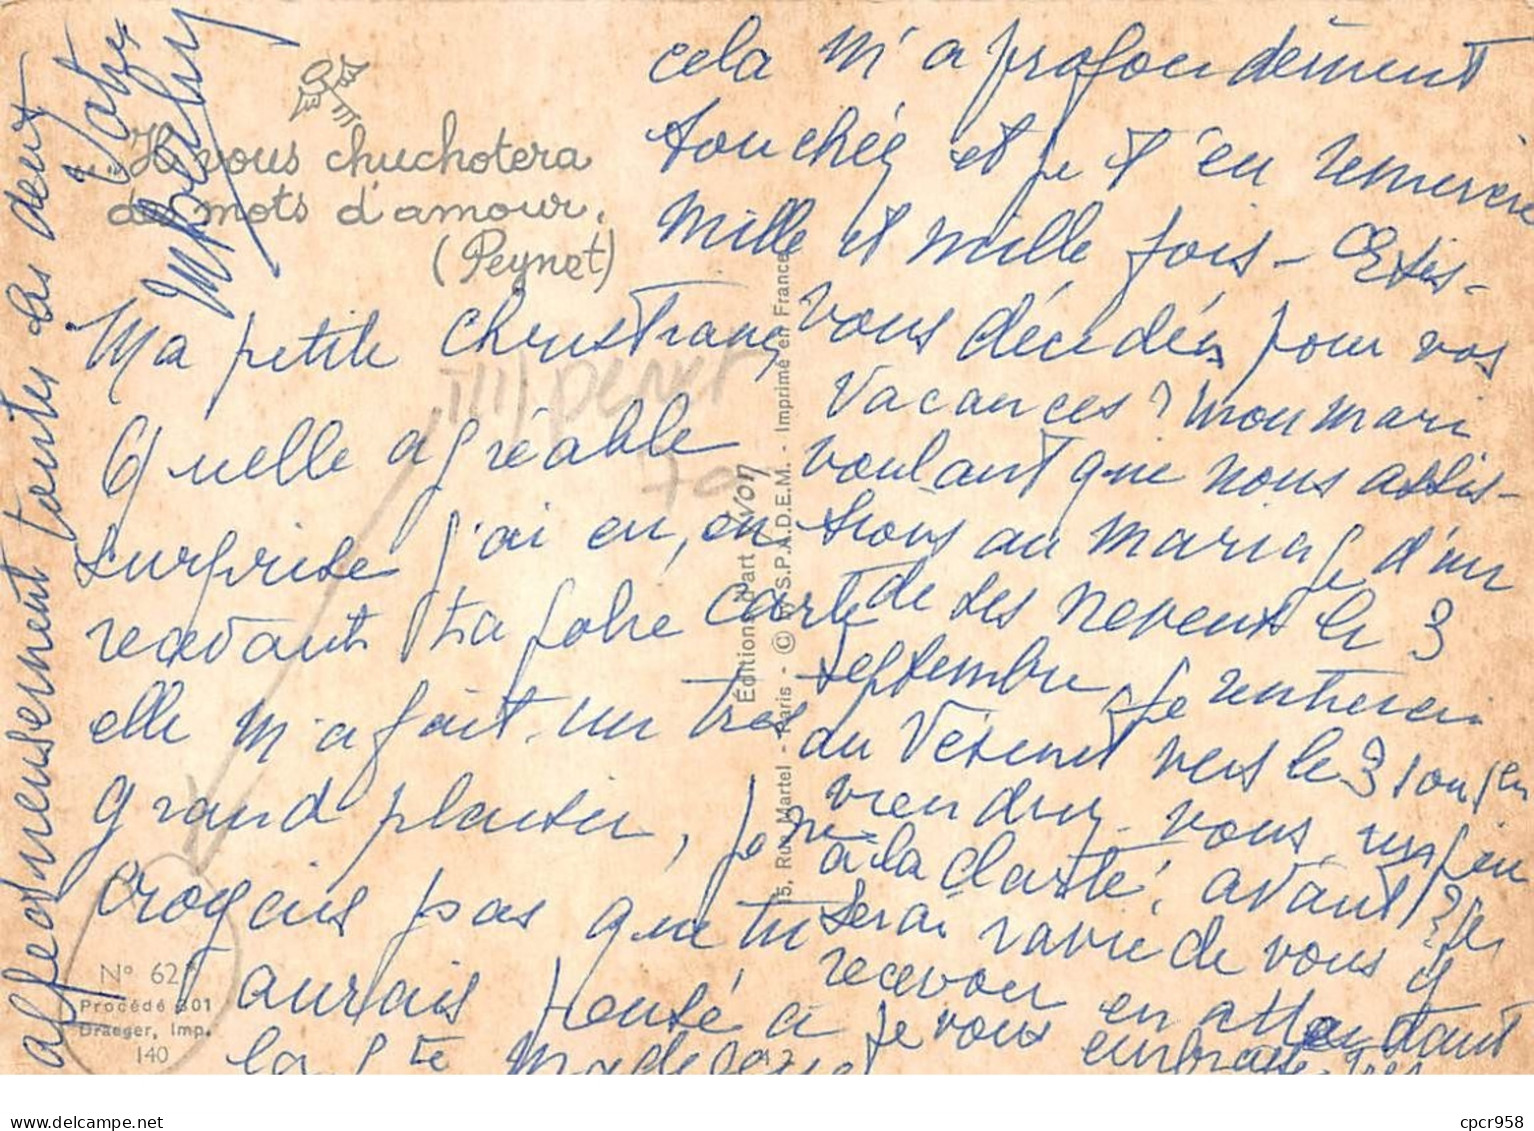 "Il vous chuchotera
des mots d'amour.
(Peynet)
Ma petite
Quelle agréable
surprise j'ai eu, en
recevant ta jolie carte
elle m'a fait un très
grand plaisir, je ne
croyais pas que tu
aurais pensé à
la Ste Madeleine
cela m'a profondément
touchée et je t'en remercie
mille et mille fois - Etes-
vous décidés pour vos
vacances ? mon mari
voulant que nous assis-
tions au mariage d'un
de ses neveux le 3
septembre, je rentrerai
au Vésinet vers le 31 août
viendrez-vous
à la clarté, avant ? je
serai ravie de vous y
recevoir en attendant
je vous embrasse très
affectueusement toutes les deux
Votre
III) penet
70
Éditions d'art Yvon
15, Rue Martel - Paris - © by S.P.A.D.E.M. - Imprimé en France
N° 62
Procédé 301
Draeger, Imp.
140
delcampe.net
cpcr958